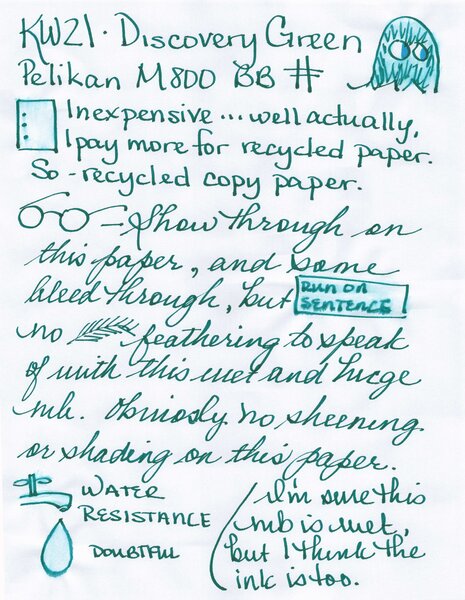 KWZI · Discovery Green
Pelikan M800 BB #
Inexpensive ... well actually,
I pay more for recycled paper.
So - recycled copy paper.
- Show through on
this paper, and some
bleed through, but RUN ON
SENTENCE
no feathering to speak
of with this wet and huge
nib. Obviously no sheening
or shading on this paper.
WATER
RESISTANCE
DOUBTFUL
(I'm sure this
nib is wet,
but I think the
ink is too.